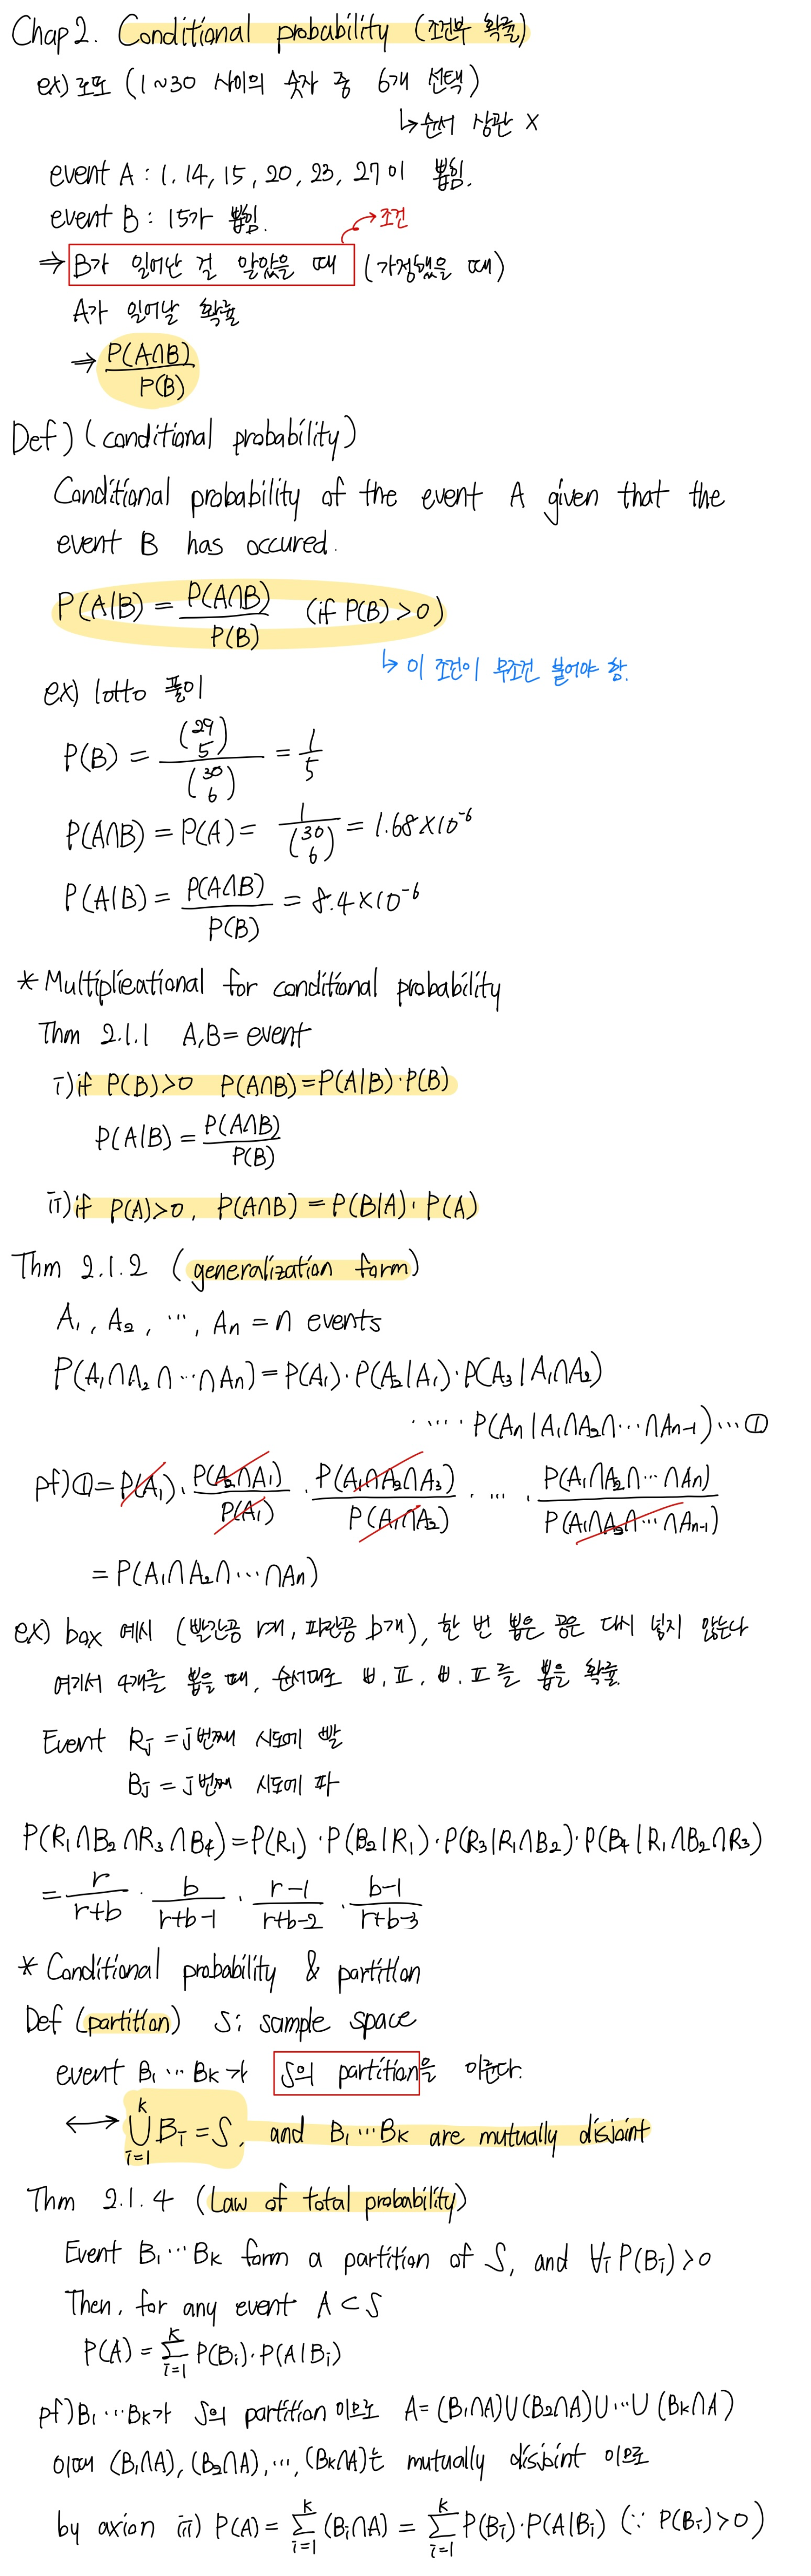 Chap 2. Conditional probability (조건부 확률)
ex) 로또 (1~30 사이의 숫자 중 6개 선택)
↳순서 상관 X
event A : 1, 14, 15, 20, 23, 27이 뽑힘.
event B : 15가 뽑힘.
→조건
⇒ B가 일어난 걸 알았을 때 (가정했을 때)
A가 일어날 확률
⇒ P(A∩B)/P(B)
Def) (conditional probability)
Conditional probability of the event A given that the
event B has occured.
P(A|B) = P(A∩B)/P(B) (if P(B) > 0)
↳ 이 조건이 무조건 붙어야 함.
ex) lotto 풀이
P(B) = (29 5)/(30 6) = 1/5
P(A∩B) = P(A) = 1/(30 6) = 1.68×10⁻⁶
P(A|B) = P(A∩B)/P(B) = 8.4×10⁻⁶
* Multiplicational for conditional probability
Thm 2.1.1 A,B = event
i) if P(B)>0 P(A∩B)=P(A|B)·P(B)
P(A|B) = P(A∩B)/P(B)
ii) if P(A)>0, P(A∩B) = P(B|A)·P(A)
Thm 2.1.2 (generalization form)
A₁, A₂, ⋯, An = n events
P(A₁∩A₂∩⋯∩An) = P(A₁)·P(A₂|A₁)·P(A₃|A₁∩A₂)
⋯⋯ P(An|A₁∩A₂∩⋯∩An-1)⋯①
pf)①= P(A₁)·P(A₂∩A₁)/P(A₁)·P(A₁∩A₂∩A₃)/P(A₁∩A₂)·⋯·P(A₁∩A₂∩⋯∩An)/P(A₁∩A₂∩⋯∩An-1)
= P(A₁∩A₂∩⋯∩An)
ex) box 예시 (빨간공 r개, 파란공 b개), 한 번 뽑은 공은 다시 넣지 않는다
여기서 4개를 뽑을 때, 순서대로 빠, 파, 빠, 파를 뽑을 확률.
Event Rj = j번째 시도에 빨
Bj = j번째 시도에 파
P(R₁∩B₂∩R₃∩B₄) = P(R₁)·P(B₂|R₁)·P(R₃|R₁∩B₂)·P(B₄|R₁∩B₂∩R₃)
= r/(r+b) · b/(r+b-1) · (r-1)/(r+b-2) · (b-1)/(r+b-3)
* Conditional probability & partition
Def (partition) S: sample space
event B₁⋯Bk가 S의 partition을 이룬다.
⟷ ⋃ᵢ₌₁ᵏ Bi = S, and B₁⋯Bk are mutually disjoint
Thm 2.1.4 (Law of total probability)
Event B₁⋯Bk form a partition of S, and ∀i P(Bi)>0
Then, for any event A⊂S
P(A) = Σᵢ₌₁ᵏ P(Bi)·P(A|Bi)
pf) B₁⋯Bk가 S의 partition 이므로 A=(B₁∩A)∪(B₂∩A)∪⋯∪(Bk∩A)
이때 (B₁∩A), (B₂∩A), ⋯, (Bk∩A)는 mutually disjoint 이므로
by axion iii) P(A) = Σᵢ₌₁ᵏ (Bi∩A) = Σᵢ₌₁ᵏ P(Bi)·P(A|Bi) (∵ P(Bi)>0)